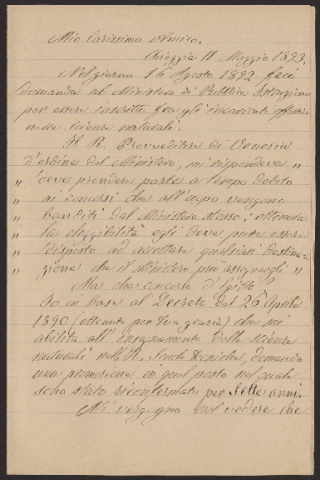 Mio Carissimo Amico.
Chioggia 11 Maggio 1893.
Nel giorno 16 Agosto 1892 feci
domanda al Ministero di Pubblica Istruzione
per essere inscritto fra gl'
nelle scienze naturali.
Il R. Provveditore di Venezia
d'ordine del Ministero, mi rispondeva „
„ deve prendere parte a tempo debito
„ ai concorsi che all'uopo vengono
„ banditi dal Ministero stesso; ottenuta
„ la eleggibilità egli deve pure essere
„ disposto ad accettare qualsiasi destina-
„ zione che il Ministero può assegnargli „
Ma che concorso d'Egitto?
Io in base al Decreto del 26 Aprile
1890 (ottenuto per Sua grazia) che mi
abilita all'insegnamento delle scienze
naturali nelle R. Scuole Tecniche, domando
una promozione in quel posto nel quale
sono stato riconfermato per sette anni.
Mi vergogno nel vedere che